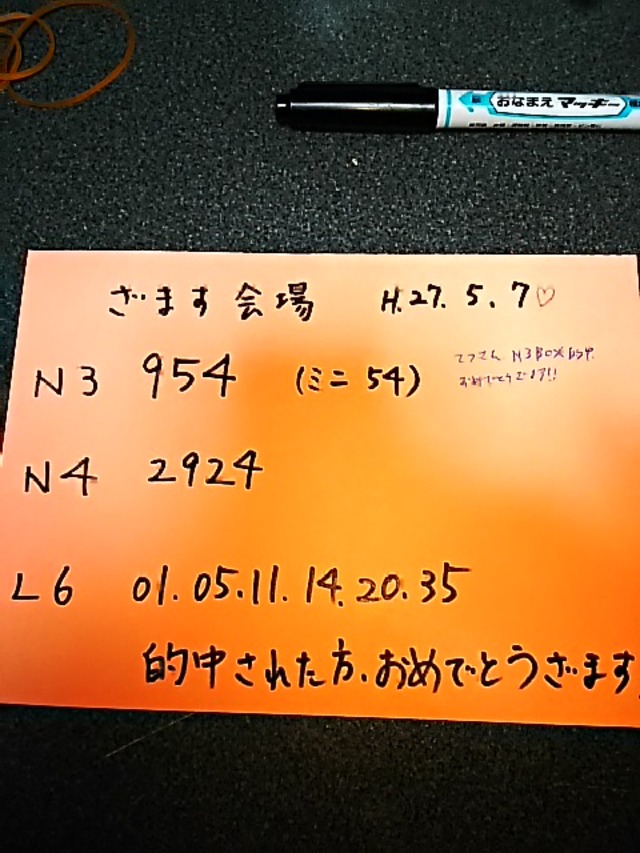 おなまえ マッキー
ざます 会場 H.27. 5. 7♡
N3 954 (ミニ 54)
てつさん N3BOX
おめでとうざます!!
N4 2924
L6 01. 05. 11. 14. 20. 35
的中された方、おめでとうざます